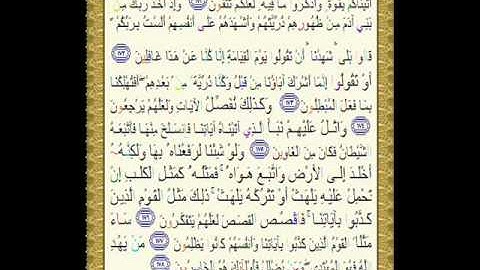 آتيناكم بقوة واذكروا ما فيه لعلكم تتقون ﴿١٧١﴾ وإذ أخذ ربك من
بني آدم من ظهورهم ذريتهم وأشهدهم على أنفسهم ألست بربكم
قالوا بلى شهدنا أن تقولوا يوم القيامة إنا كنا عن هذا غافلين ﴿١٧٢﴾
أو تقولوا إنما أشرك آباؤنا من قبل وكنا ذرية من بعدهم أفتهلكنا
بما فعل المبطلون ﴿١٧٣﴾ وكذلك نفصل الآيات ولعلهم يرجعون
﴿١٧٤﴾ واتل عليهم نبأ الذي آتيناه آياتنا فانسلخ منها فأتبعه
الشيطان فكان من الغاوين ﴿١٧٥﴾ ولو شئنا لرفعناه بها ولكنه
أخلد إلى الأرض واتبع هواه فمثله كمثل الكلب إن
تحمل عليه يلهث أو تتركه يلهث ذلك مثل القوم الذين
كذبوا بآياتنا فاقصص القصص لعلهم يتفكرون ﴿١٧٦﴾ ساء
مثلا القوم الذين كذبوا بآياتنا وأنفسهم كانوا يظلمون ﴿١٧٧﴾ من يهد
الله فهو المهتدي ومن يضلل فأولئك هم الخاسرون ﴿١٧٨﴾